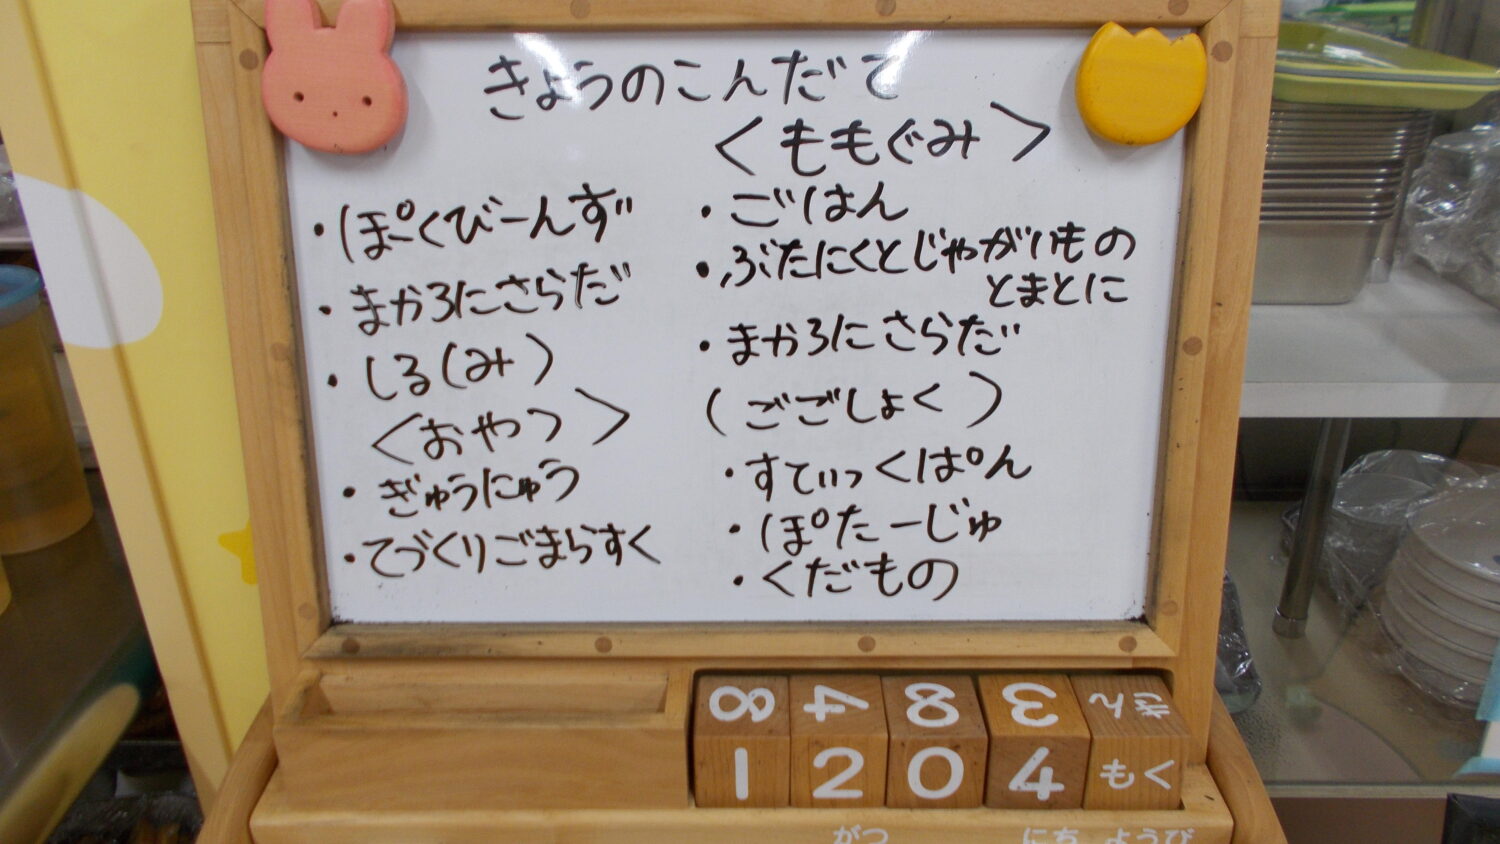 きょうのこんだて
・ぽーくびーんず
・まかろにさらだ
・しる(み)
<おやつ>
・ぎゅうにゅう
・てづくりごまらすく
<ももぐみ>
・ごはん
・ぶたにくとじゃがいもの
とまとに
・まかろにさらだ
(ごごしょく)
・すてぃっくぱん
・ぽたーじゅ
・くだもの
8 4 8 3 きん
1 2 0 4 もく
がつ にち ようび